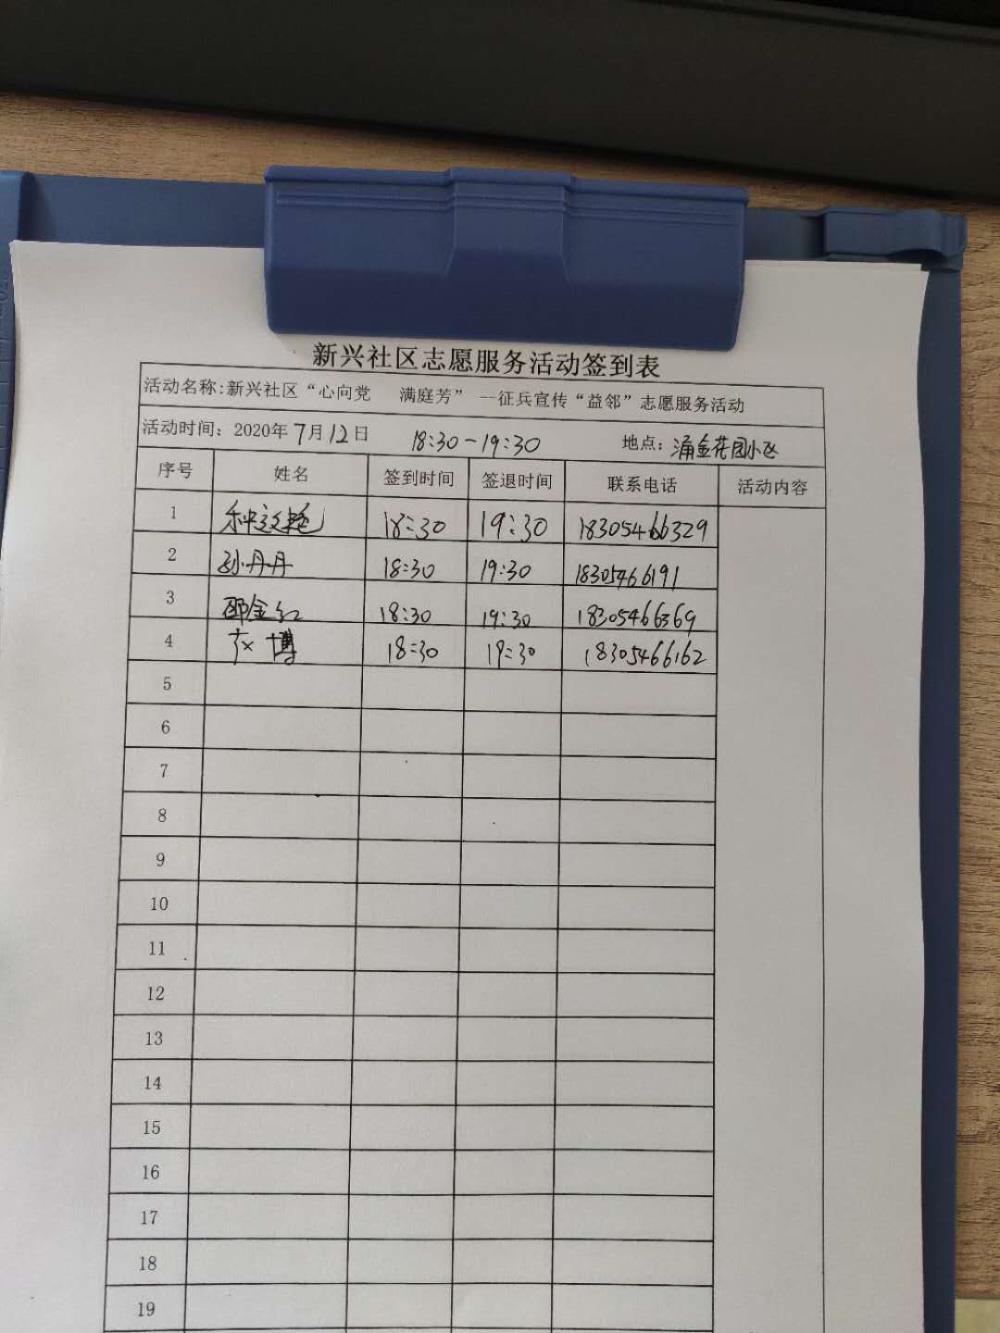 新兴社区志愿服务活动签到表
活动名称:新兴社区“心向党 满庭芳” --征兵宣传“益邻”志愿服务活动
活动时间: 2020年7月12日 18:30-19:30 地点: 涌金花园小区
序号 姓名 签到时间 签退时间 联系电话 活动内容
1 18:30 19:30 18305466329
2 孙丹丹 18:30 19:30 18305466191
3 邵金红 18:30 19:30 18305466369
4 博 18:30 19:30 18305466162
5
6
7
8
9
10
11
12
13
14
15
16
17
18
19